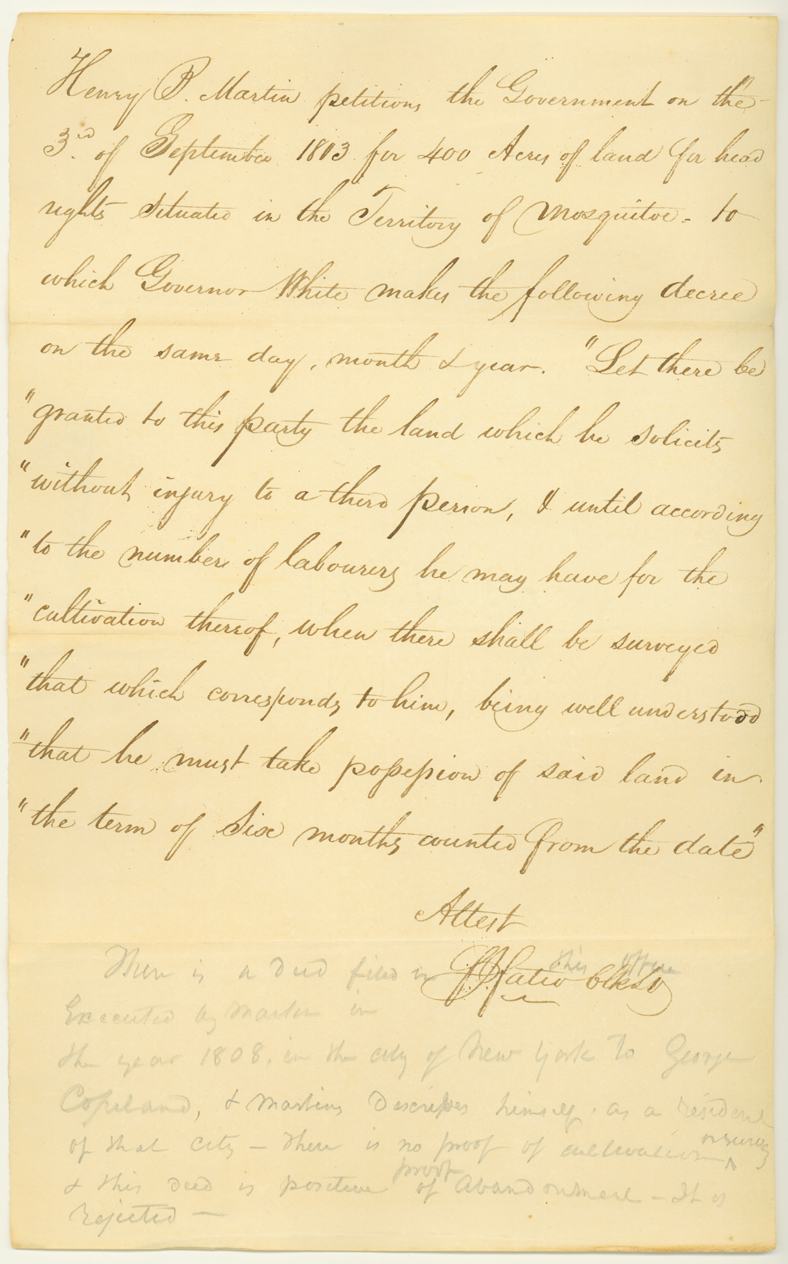 Henry R. Martin petitions the Government on the
3rd. of September 1803 for 400 Acres of land for head
rights situated in the Territory of Mosquitoe - to
which Governor White makes the following decree
on the same day, month & year. "Let there be
"granted to this party the land which he solicits
"without injury to a third person, & until according
"to the number of labourers he may have for the
"cultivation thereof, when there shall be surveyed
"that which corresponds to him, being well understood
"that he must take possession of said land in
"the term of Six months counted from the date"
Attest
There is a deed filed in this office
Executed by Martin in
the year 1808. in the city of New York to George
Copeland, & Martin describes himself as a resident
of that city - There is no proof of cultivation or survey
& this deed is positive proof of Abandonment - It is
rejected -